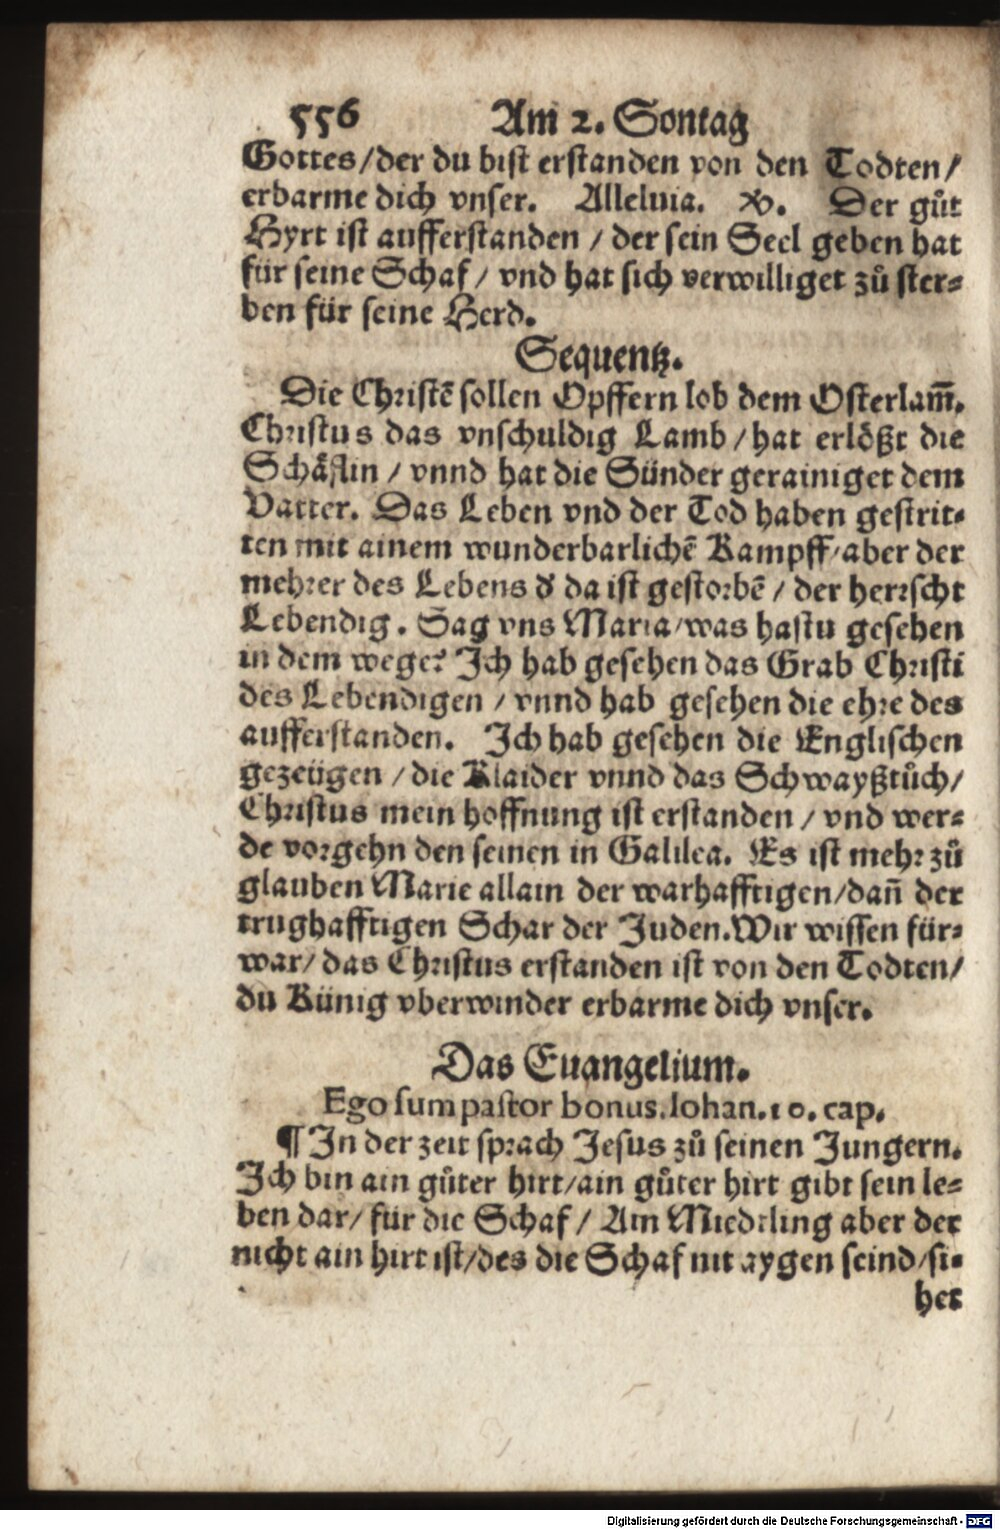 556 Am 2. Sontag
Gottes/der du bist erstanden von den Todten/
erbarme dich vnser. Alleluia. ℣. Der gůt
Hyrt ist aufferstanden / der sein Seel geben hat
für seine Schaf / vnd hat sich verwilliget zů ster⸗
ben für seine Herd.
Sequentz.
Die Christẽ sollen Opffern lob dem Osterlam̃.
Christus das vnschuldig Lamb / hat erlößt die
Schäflin / vnnd hat die Sünder gerainiget dem
Vatter. Das Leben vnd der Tod haben gestrit⸗
ten mit ainem wunderbarlichẽ Kampff/aber der
mehrer des Lebens d' da ist gestorbẽ / der herrscht
Lebendig. Sag vns Maria/was hastu gesehen
in dem wege? Ich hab gesehen das Grab Christi
des Lebendigen / vnnd hab gesehen die ehre des
aufferstanden. Ich hab gesehen die Englischen
gezeügen / die Klaider vnnd das Schwayßtůch/
Christus mein hoffnung ist erstanden / vnd wer⸗
de vorgehn den seinen in Galilea. Es ist mehr zů
glauben Marie allain der warhafftigen/dañ der
trughafftigen Schar der Juden. Wir wissen für⸗
war/ das Christus erstanden ist von den Todten/
du Künig vberwinder erbarme dich vnser.
Das Euangelium.
Ego sum pastor bonus. Iohan. 10. cap.
¶ In der zeit sprach Jesus zů seinen Jungern.
Ich bin ain gůter hirt/ain gůter hirt gibt sein le⸗
ben dar/ für die Schaf / Ain Miedtling aber der
nicht ain hirt ist/des die Schaf nit aygen seind/si⸗
het
Digitalisierung gefördert durch die Deutsche Forschungsgemeinschaft - DFG